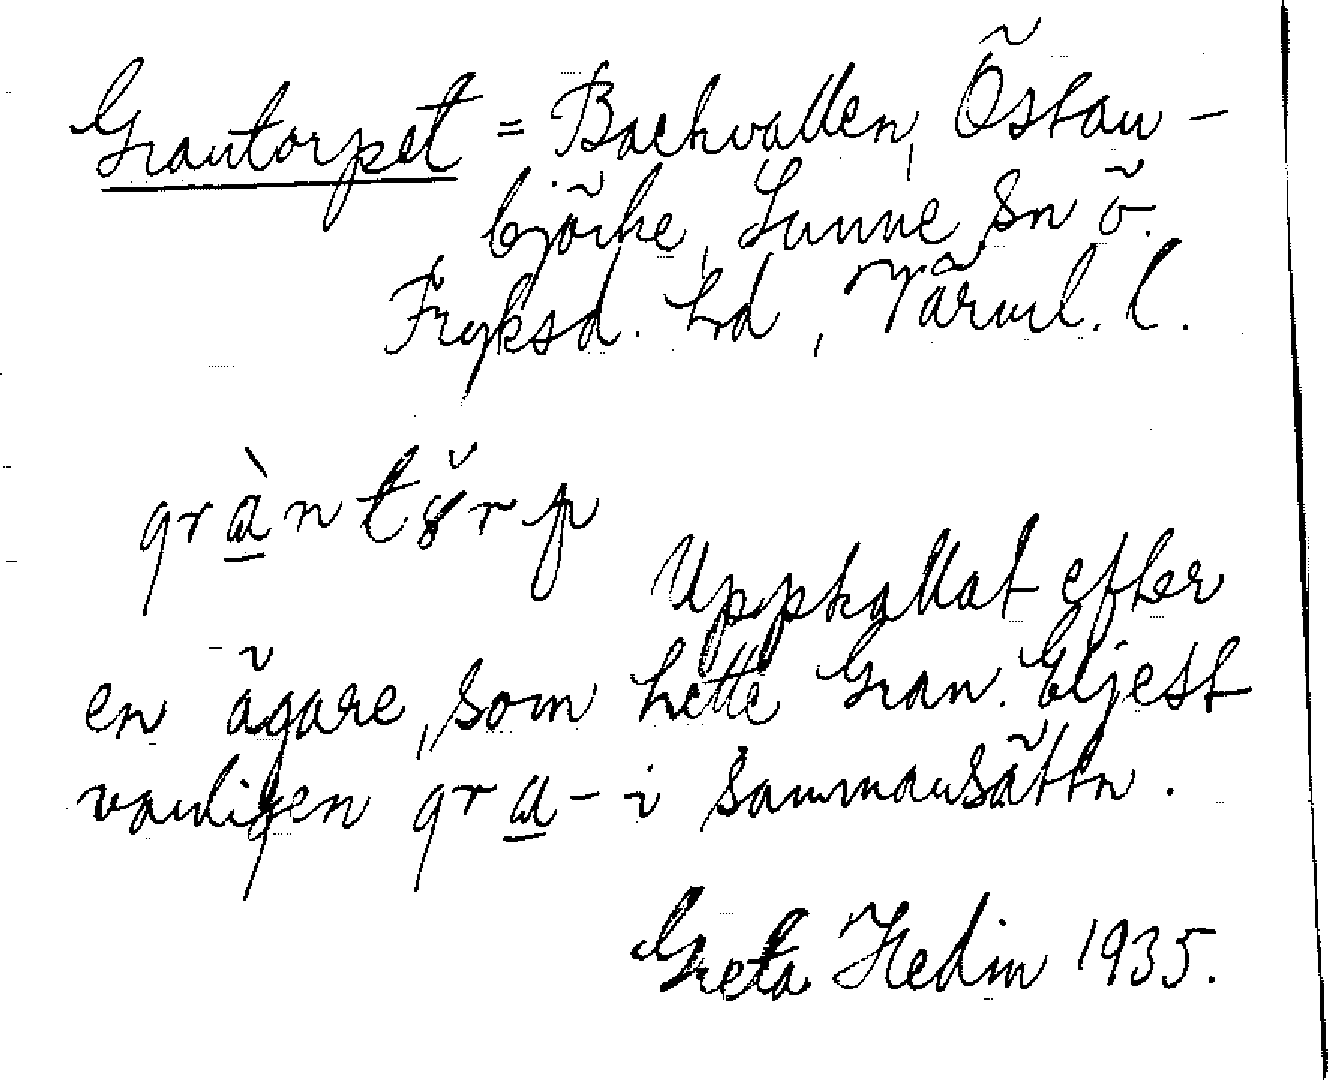 Grantorpet = Backvallen, Östan-
björke, Sunne Sn ö.
Fryksd. hd, Värml. l.
gràntŏrp
Uppkallat efter
en ägare, som hette Gran. Eljest
vanligen gra- i sammansättn.
Greta Hedin 1935.